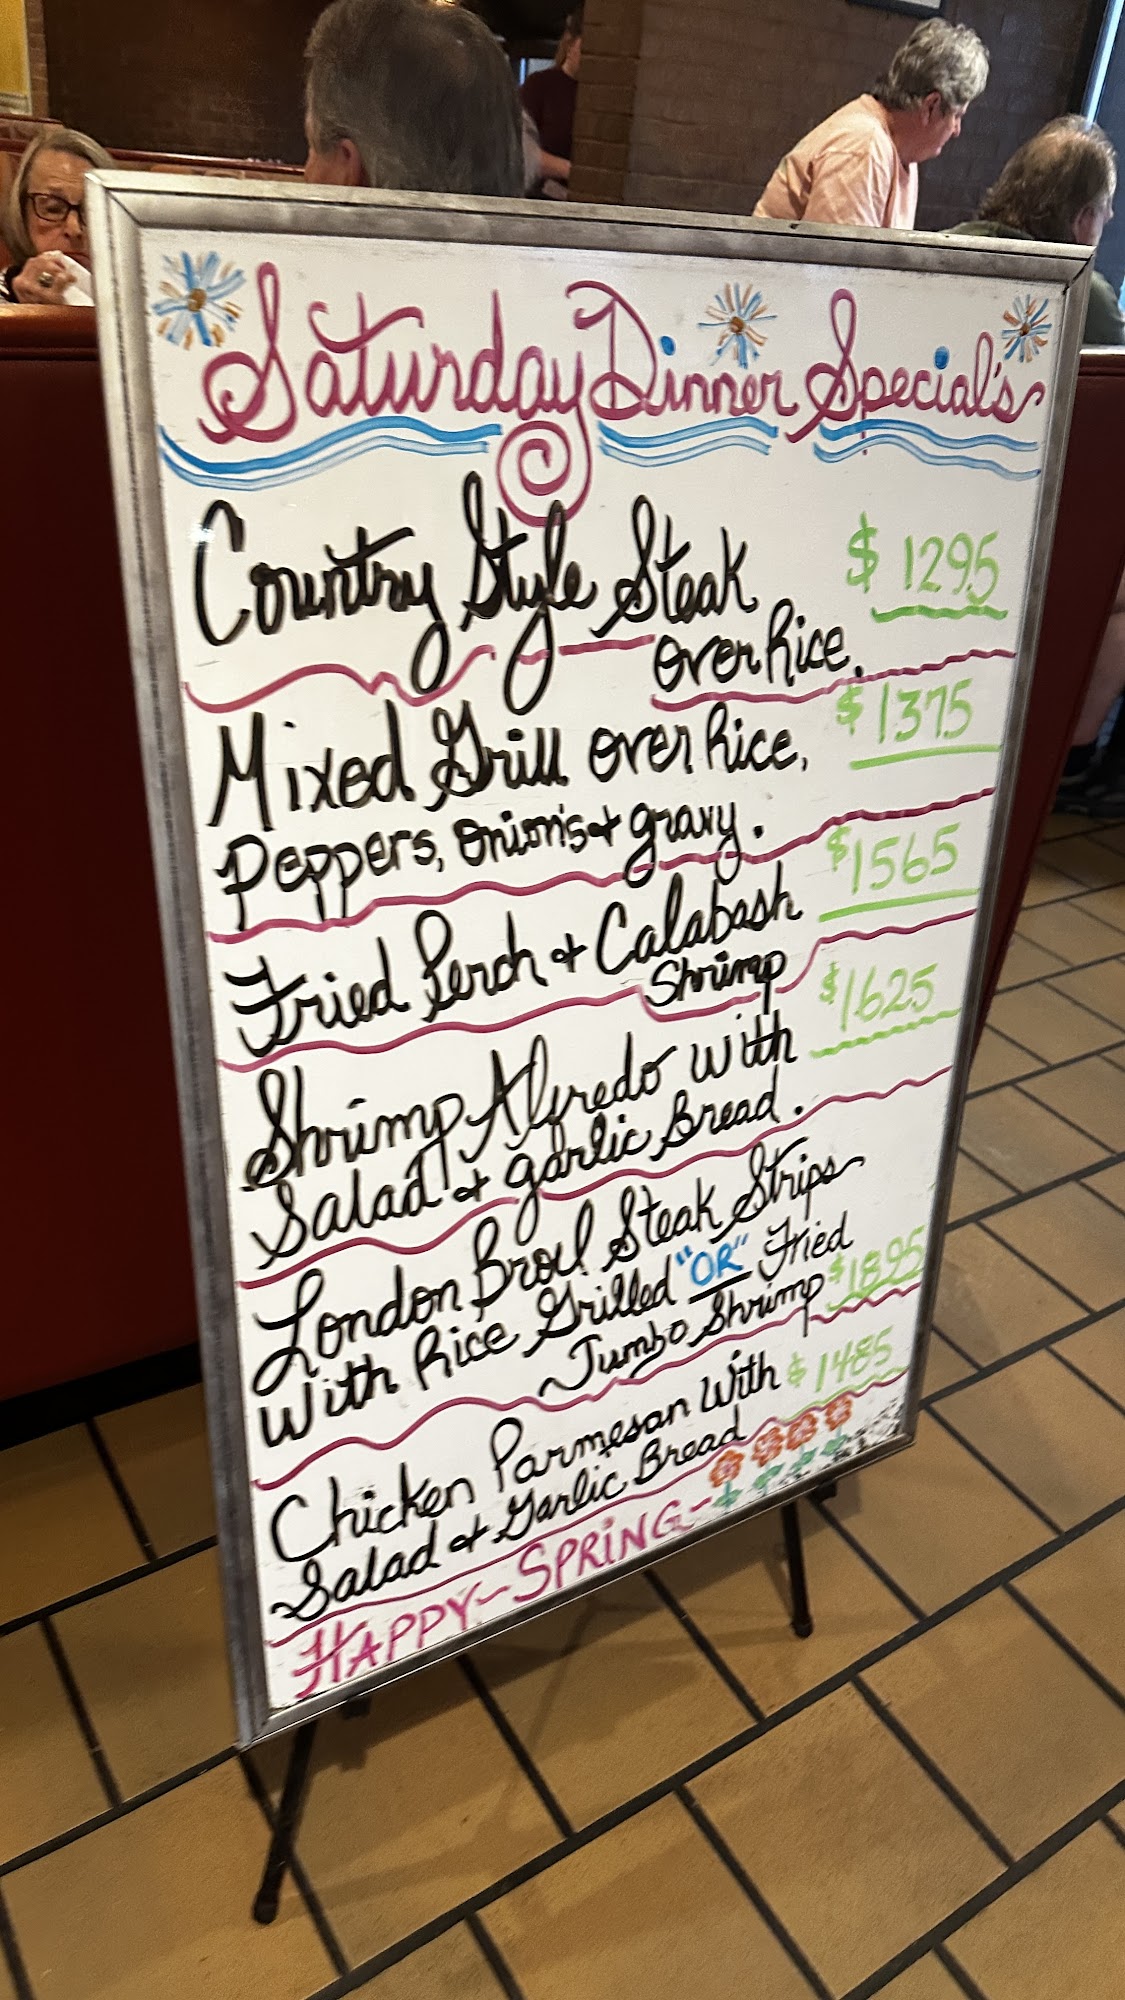 Saturday Dinner Special's
Country Style Steak $1295
over Rice.
Mixed Grill over Rice, $1375
Peppers, onion's + gravy.
Fried Perch + Calabash $1565
Shrimp
Shrimp Alfredo with $1625
Salad + garlic Bread.
London Broil Steak Strips
With Rice Grilled "OR" Fried
Jumbo Shrimp $1895
Chicken Parmesan With $1485
Salad + Garlic Bread
HAPPY~SPRING~